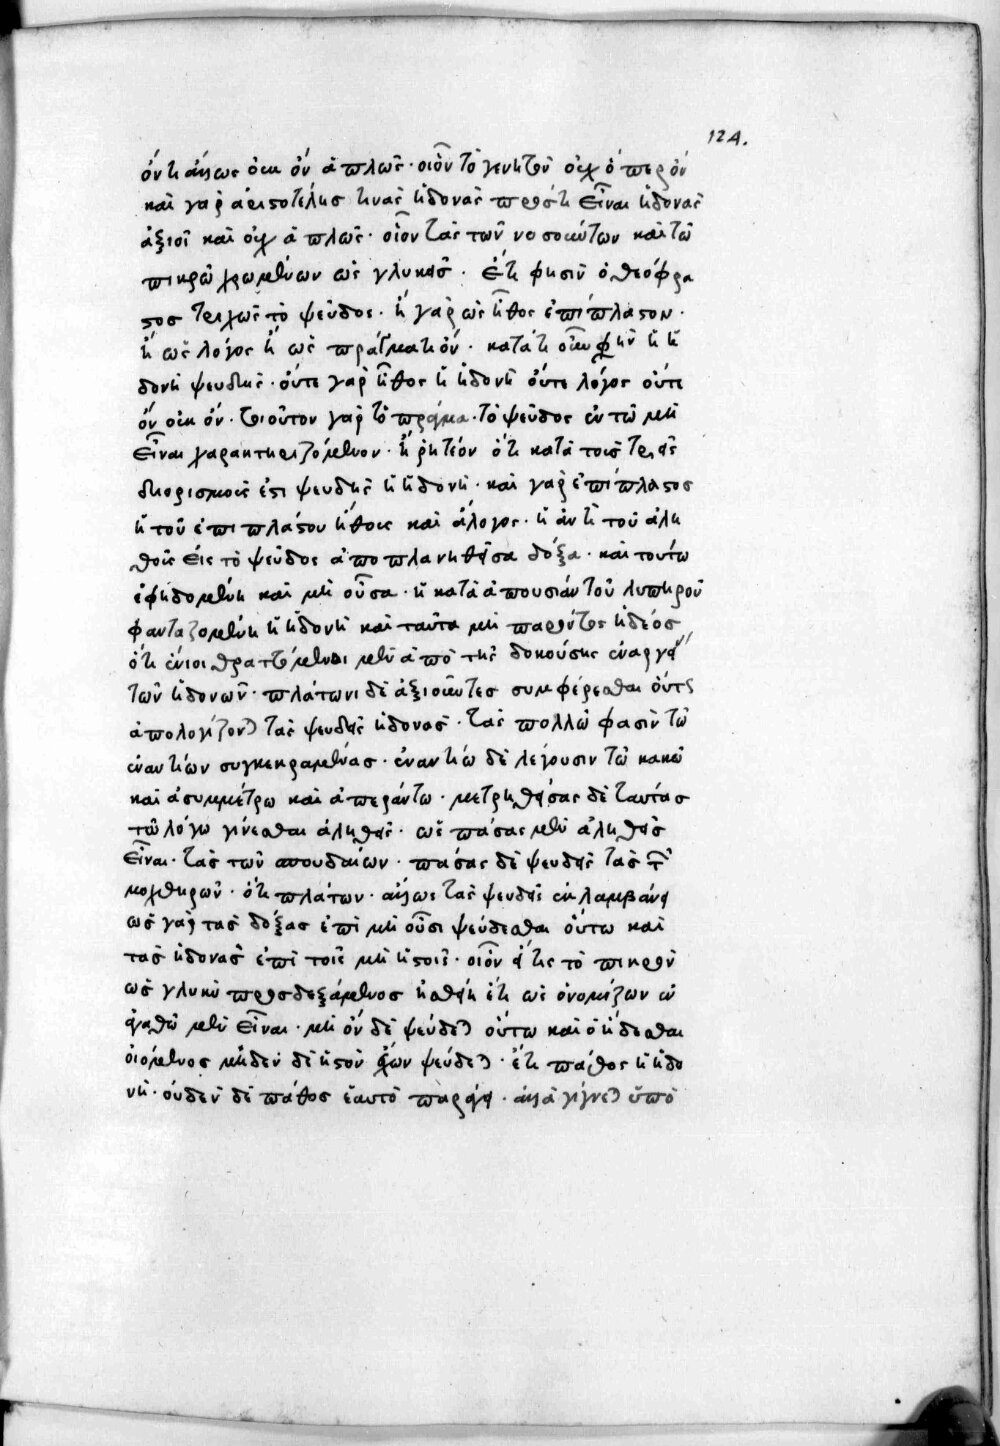 124.
ὄν τι ἄλλως οὐκ ὂν ἁπλῶς· οἷον τὸ γενητὸν οὐχ ὅπερ ὄν
καὶ γὰρ ἀριστοτέλης τινὰς ἡδονὰς προσ εἶναι ἡδονὰς
ἀξιοῖ καὶ οὐχ ἁπλῶς· οἷον τὰς τῶν νοσούντων καὶ τῶ
πικρῶ χρωμένων ὡς γλυκεῖ· ἔτι φησὶν ὁ θεόφρα
στος τριχῶς τὸ ψεῦδος· ἢ γὰρ ὡς ἦθος ἐπίπλαστον·
ἢ ὡς λόγος ἢ ὡς πρᾶγμά τι ὄν· κατὰ τί οὖν φησὶν ἡ ἡ
δονὴ ψευδὴς· οὔτε γὰρ ἦθος ἡ ἡδονὴ οὔτε λόγος οὔτε
ὂν οὐκ ὄν· τοιοῦτον γὰρ τὸ πρᾶγμα· τὸ ψεῦδος ἐν τῶ μὴ
εἶναι χαρακτηριζόμενον· ἢ ῥητέον ὅτι κατὰ τοὺς τρεῖς
διορισμοὺς ἐστι ψευδὴς ἡ ἡδονὴ· καὶ γὰρ ἐπίπλαστος
ἡ τοῦ ἐπιπλάστου ἤθους καὶ ἄλογος· ἡ ἀντὶ τοῦ ἀλη
θοῦς εἰς τὸ ψεῦδος ἀποπλανηθεῖσα δόξα· καὶ τούτω
ἐφηδομένη καὶ μὴ οὖσα· ἡ κατὰ ἀπουσίαν τοῦ λυπηροῦ
φανταζομένη ἡ ἡδονὴ καὶ ταῦτα μὴ παρόντος ἡδέος
ὅτι ἔνιοι θραττόμενοι μὲν ἀπὸ τῆς δοκούσης ἐναργεί
τῶν ἡδονῶν· πλάτωνι δὲ ἀξιοῦντες συμφέρεσθαι οὕτως
ἀπολογίζονται τὰς ψευδεῖς ἡδονὰς· τὰς πολλῶ φασὶν τῶ
ἐναντίων συγκεκραμένας· ἐναντίω δὲ λέγουσιν τῶ κακῶ
καὶ ἀσυμμέτρω καὶ ἀπεράντω· μετρηθείσας δὲ ταύτας
τῶ λόγω γίνεσθαι ἀληθεῖς· ὡς πάσας μὲν ἀληθεῖς
εἶναι· τὰς τῶν σπουδαίων· πάσας δὲ ψευδεῖς τὰς τῶν
μοχθηρῶν· ὅτι πλάτων· ἄλλως τὰς ψευδεῖς ἐκλαμβάνει
ὡς γὰρ τὰς δόξας ἐπὶ μὴ οὖσι ψεύδεσθαι οὕτω καὶ
τὰς ἡδονὰς ἐπὶ τοῖς μὴ ἡστοῖς· οἷον εἴ τις τὸ πικρὸν
ὡς γλυκὺ προσδεξάμενος ἡσθείη ἔτι ὡς ὀνομάζων ἐν
ἀγαθῶ μὲν εἶναι· μὴ ὂν δὲ ψεύδεται οὕτω καὶ ὁ ἥδεσθαι
οἰόμενος μηδὲν δὲ ἡστὸν ἔχων ψεύδεται· ἔτι πάθος ἡ ἡδο
νὴ· οὐδὲν δὲ πάθος ἑαυτὸ παράγει· ἀλλὰ γίγνεται ὑπὸ